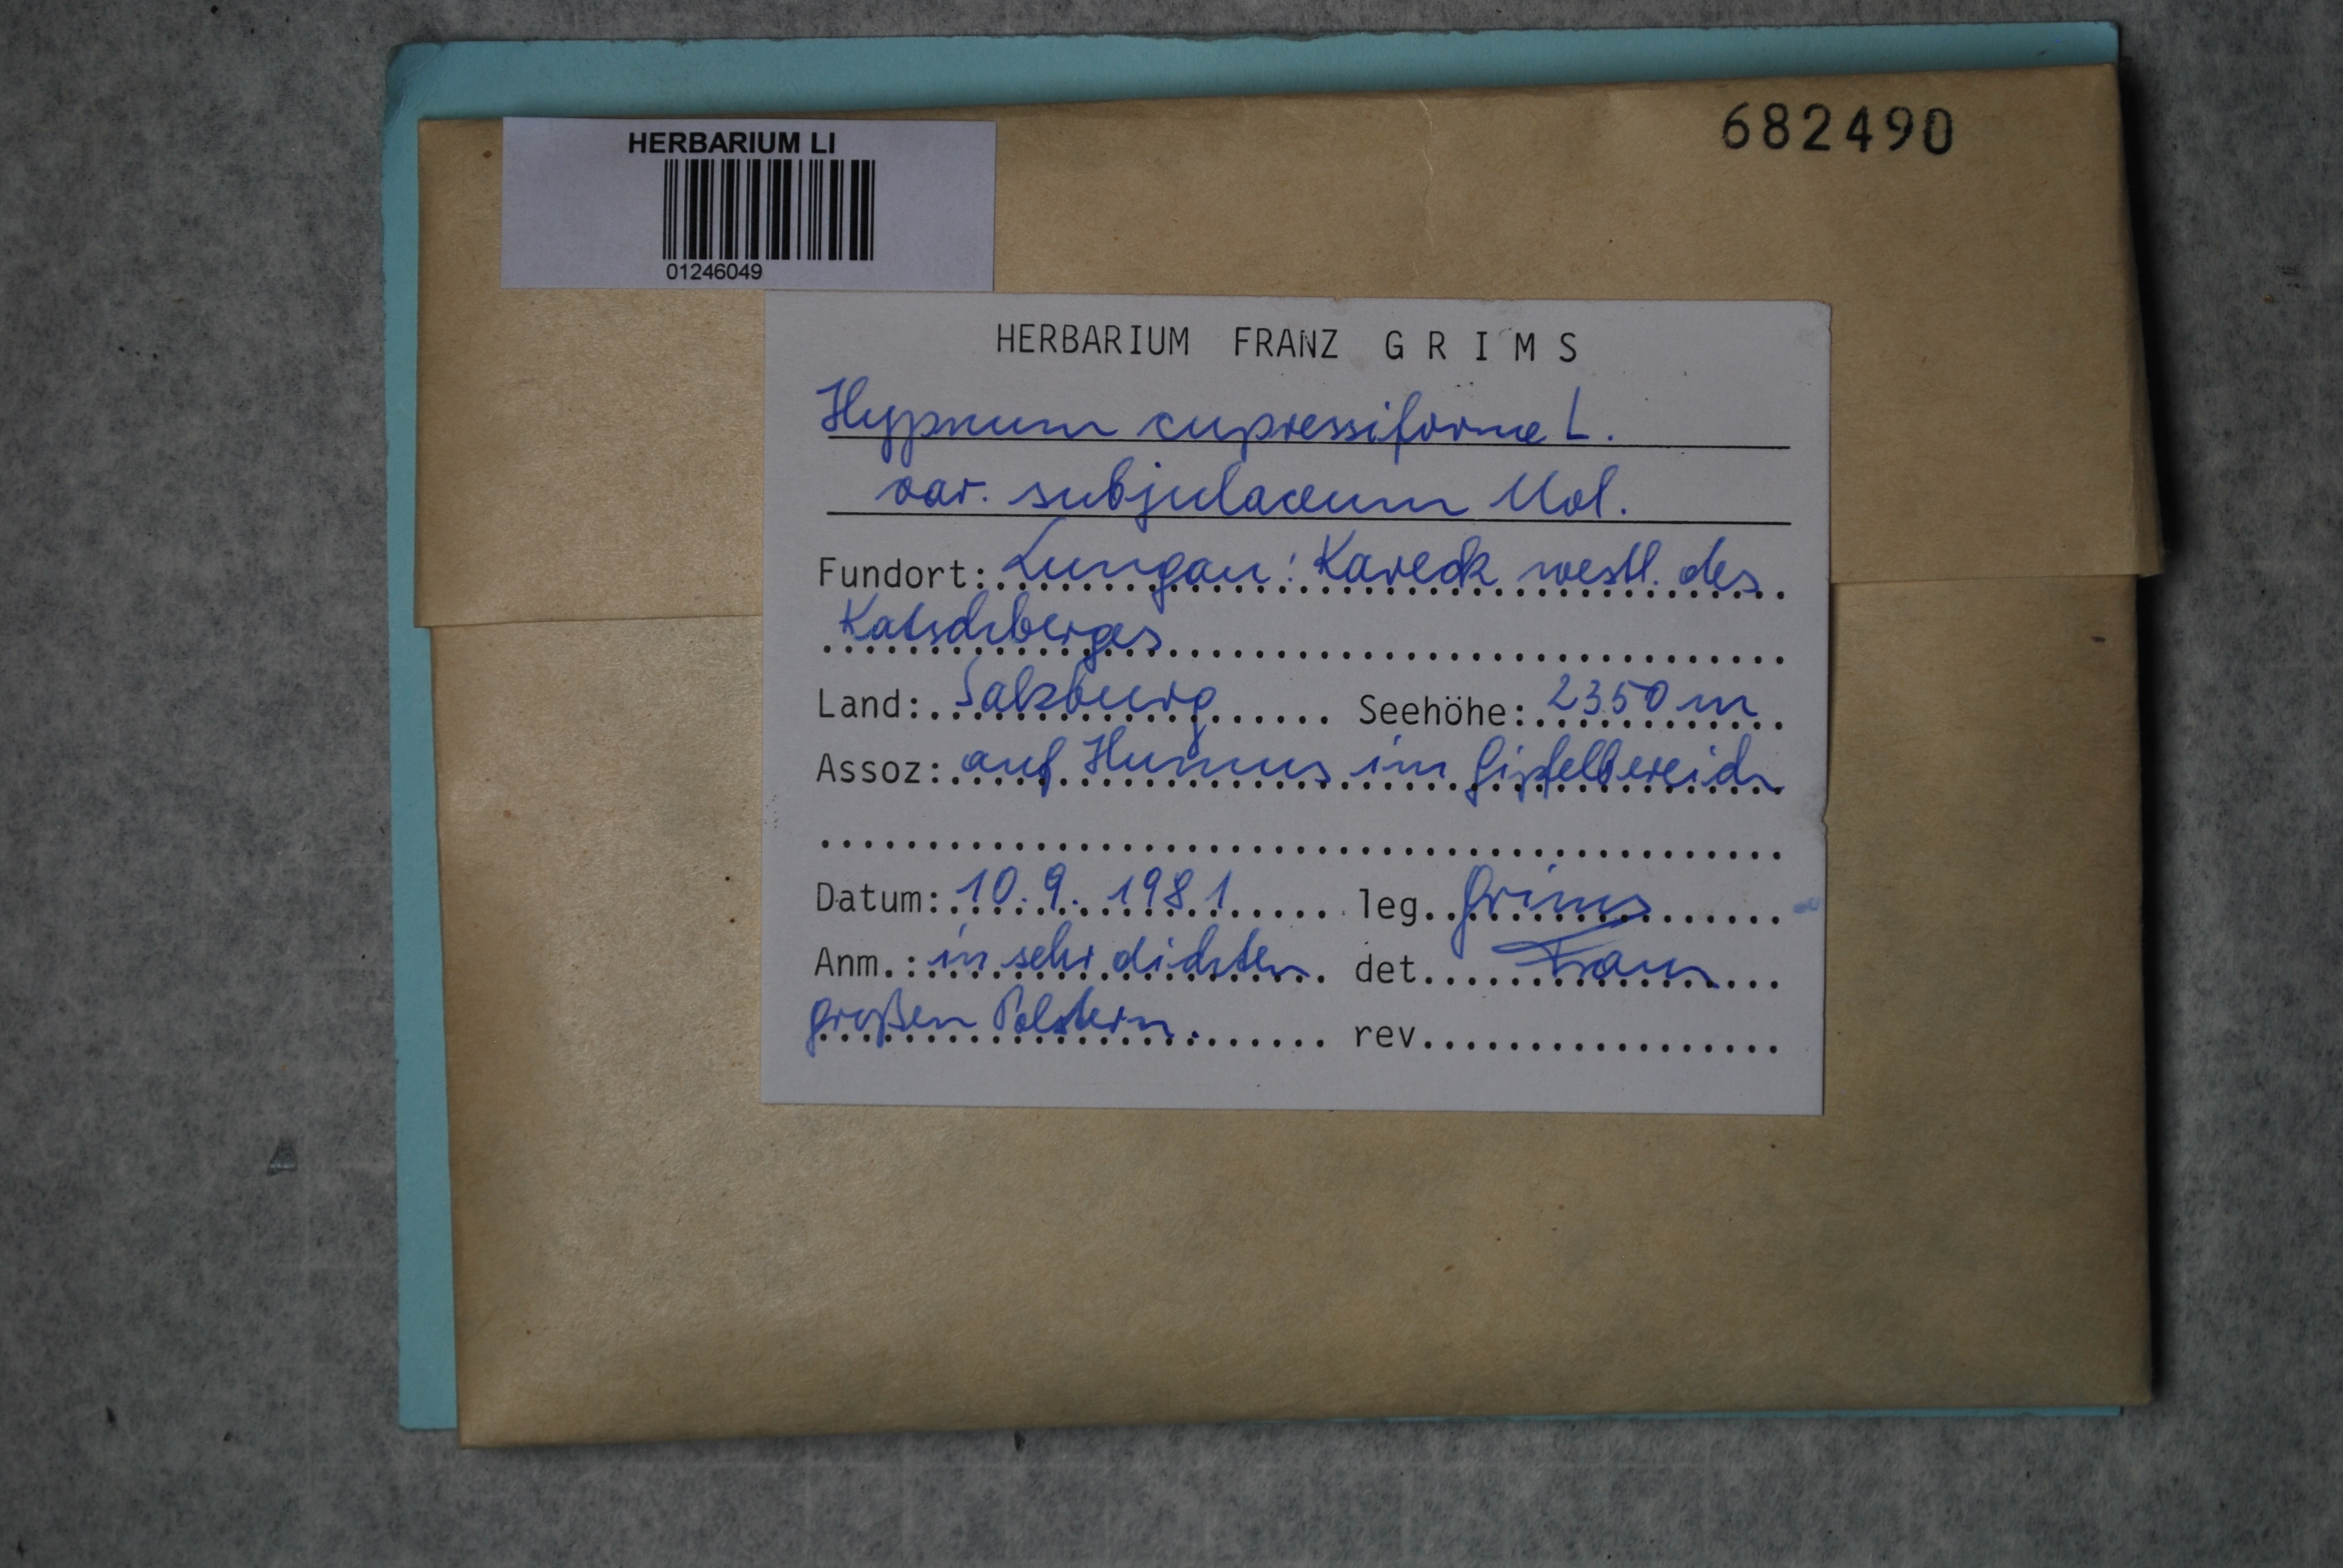 682490
HERBARIUM LI
01246049
HERBARIUM FRANZ GRIMS
Hypnum cupressiforme L.
var. subjulaceum Mol.
Fundort: Lungau: Kareck westl. des
Katschberges
Land: Salzburg Seehöhe: 2350 m
Assoz: auf Humus im Gipfelbereich
Datum: 10.9.1981 leg. Grims
Anm.: in sehr dichten det. Franz
großen Polstern. rev.